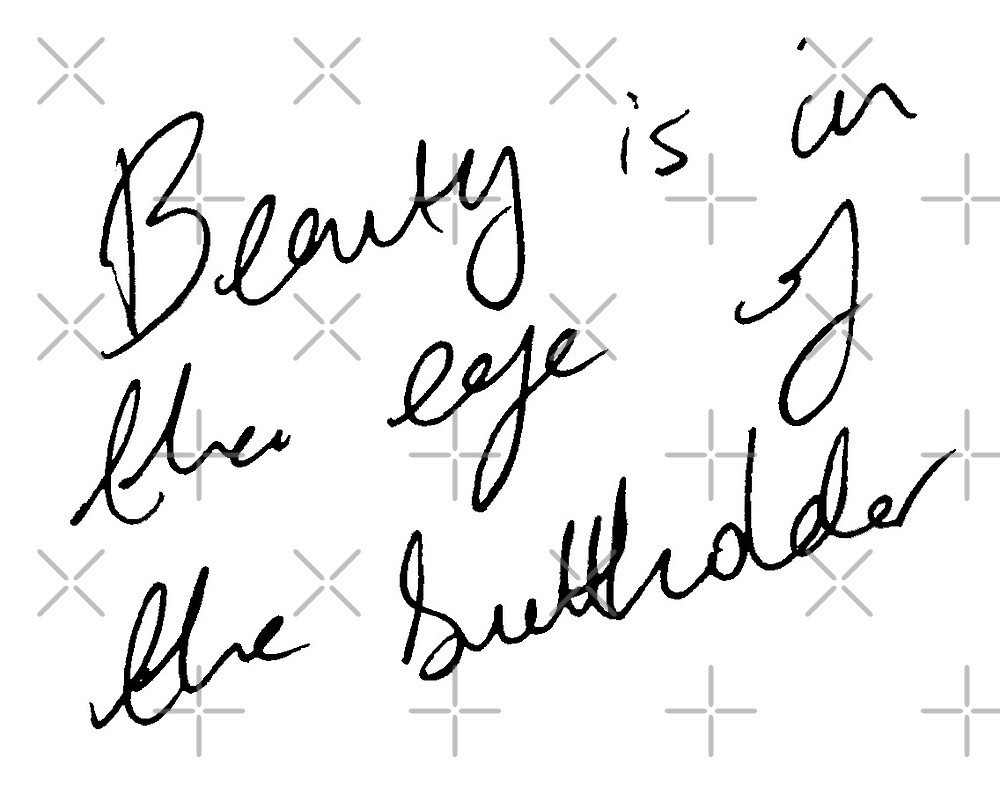 Beauty is in
the eye of
the buttholder